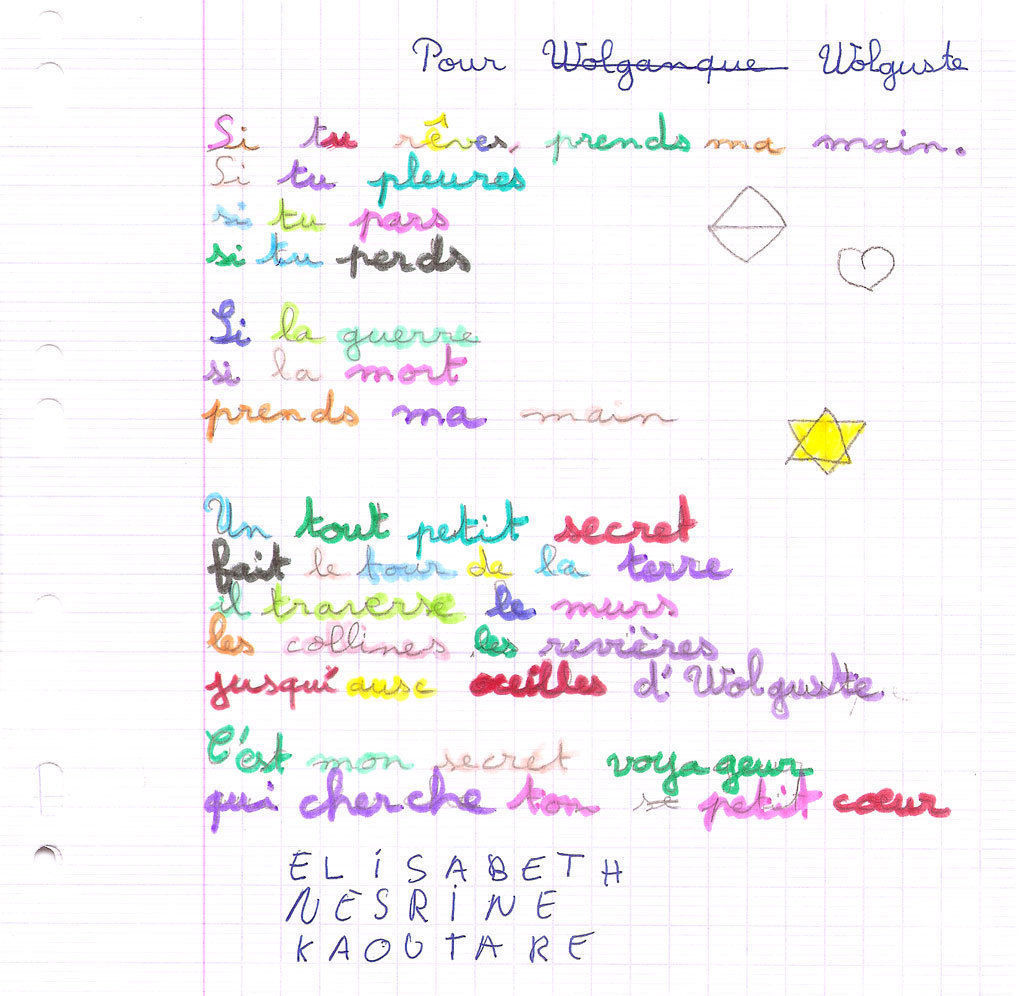 Pour Wolganque Wolguste
Si tu rêves, prends ma main.
Si tu pleures
si tu pars
si tu perds
Si la guerre
si la mort
prends ma main
Un tout petit secret
fait le tour de la terre
il traverse le murs
les collines les revières
jusqui ausc oceilles d'Wolguste.
C'est mon secret voyageur
qui cherche ton se petit cœur
ELiSABETH
NESRiNE
KAOUTARE